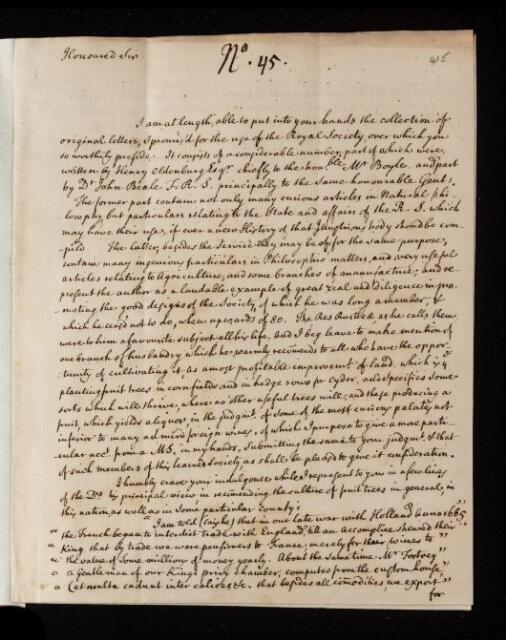 Honoured Sir
No. 45.
45
I am at length able to put into your hands the collection of
original letters, I promis'd for the use of the Royal Society over which you
so worthily preside. It consists of a considerable number, part of which were
written by Henry Oldenburg Esqr. chiefly to the honble. Mr Boyle, and part
by Dr John Beale F. R. S. principally to the same honourable Gent:
The former part contain not only many curious articles in Natural Phi-
losophy but particulars relating to the State and affairs of the R. S. which
may have their use, if ever a new History of that Illustrious body should be com-
pil'd. The latter, besides the Service they may be of for the same purpose,
contain many ingenious particulars in Philosophic matters, and very useful
articles relating to Agriculture, and some branches of manufacture; and re-
present the author as a laudable example of great zeal and diligence in pro-
moting the good designs of the Society, of which he was long a member, &
which he ceas'd not to do, when upwards of 80. The Res Rusticæ as he calls them
were to him a favourite subject all his life, and I beg leave to make mention of
one branch of husbandry which he warmly recomends to all who have the oppor-
tunity of cultivating it as a most profitable improvemt. of land, which is ye
planting fruit trees in cornfields and in hedge rows for cyder, and specifies some
sorts which will thrive, where no other useful trees will; and these producing a
fruit, which yields a liquor, in the judgmt. of some of the most curious palates, not
inferior to many admired foreign wines, of which I purpose to give a more parti-
cular acct. from a MS. in my hands, submitting the same to your judgmt. & that
of such members of this learned Society as shall be pleased to give it consideration.
I humbly crave your indulgence while I represent to you in a few lines
of the Drs principal view in recomending the culture of fruit trees in general, in
this nation, as well as in some particular Countys
I am told (says he) that in our late war with Holland anno 1665
" the French began to interdict trade with England, till an accomplice shewed their "
" King that by trade we were pensioners to France, merely for their wines to "
" the value of some millions of money yearly. About the same time Mr Fortrey "
" a Gentleman of our Kings privy chamber, computes from the custom house, "
" (et multa cadunt inter calices &c. that besides all comodities we export "
for